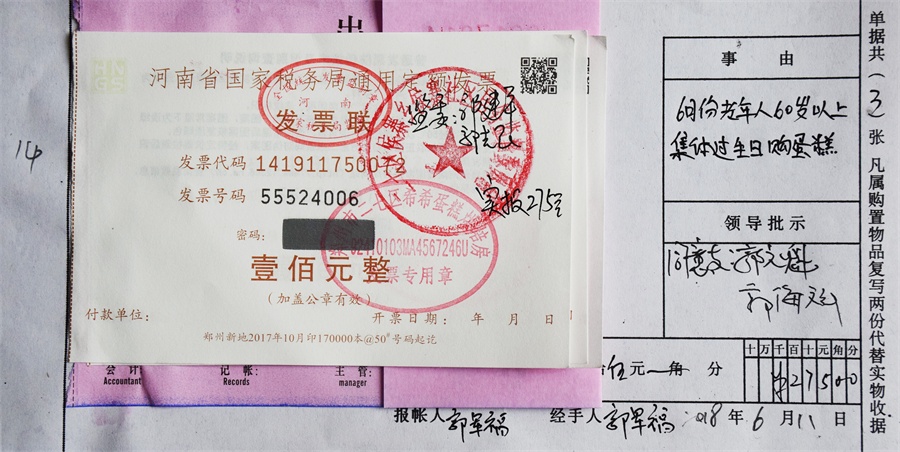 14
出
河南省国家税务局通用定额发票
河南
发票联
发票代码 141911750012
发票号码 55524006
密码:
壹佰元整
(加盖公章有效)
付款单位:
开票日期: 年 月 日
郑州新地2017年10月印170000本@50#号码起讫
92410103MA4567246U
市二七区希希蛋糕
票专用章
实报275元
会计
Accountant
记帐:
Records
主管:
manager
事由
6月份老年人60岁以上
集体过生日购蛋糕
领导批示
伍元一角 分
十万千百十元角分
¥27500
报帐人 郭军福
经手人 郭军福
2018年6月11日
单据共(3)张 凡属购置物品复写两份代替实物收据